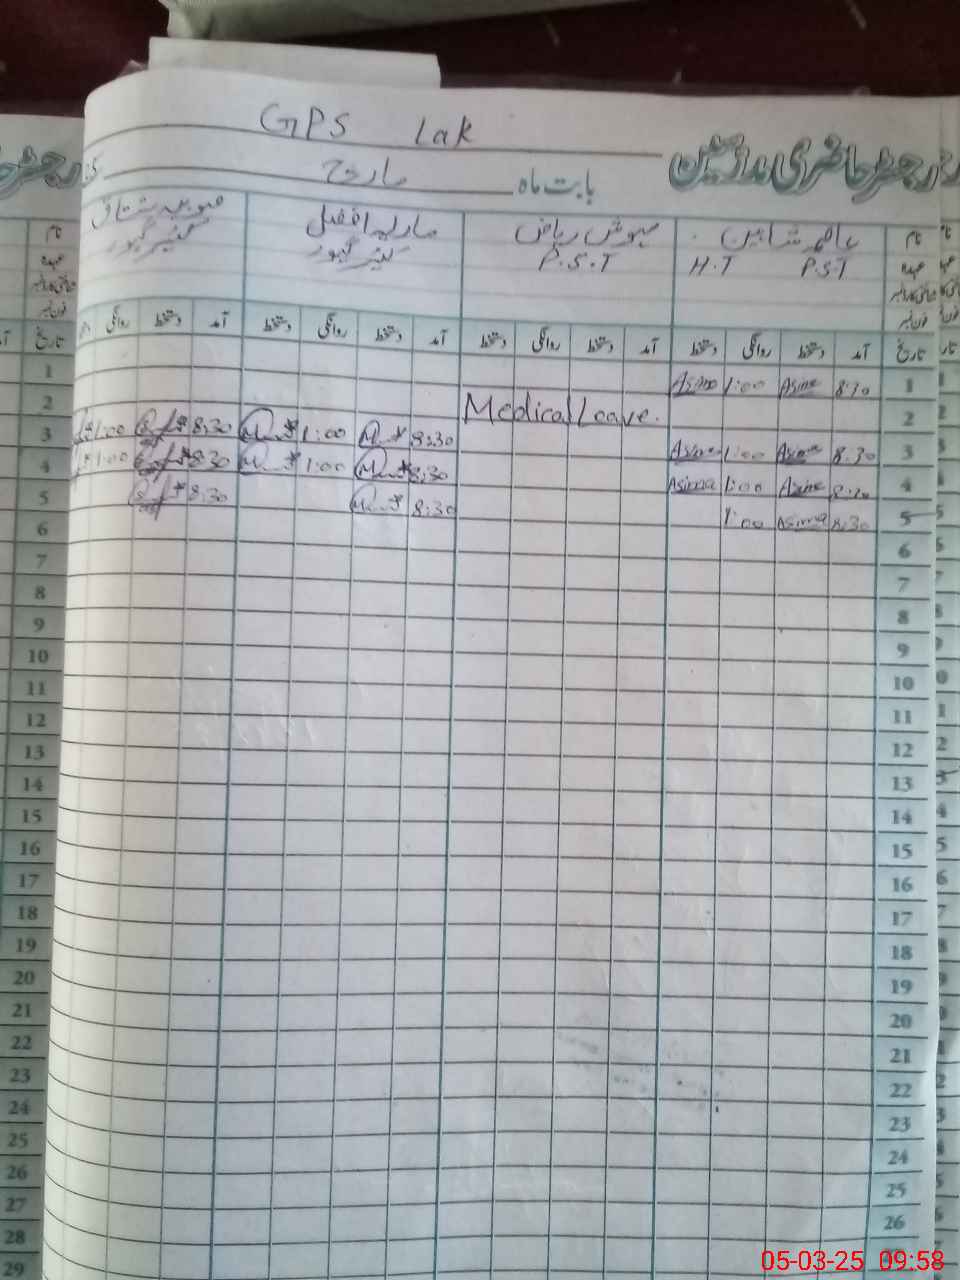 GPS Lak
رجسٹر حاضری مدرسین
بابت ماہ مارچ
نام عاصمہ شاہین مہوش ریاض ماریہ افضل
عہدہ H.T P.S.T P.S.T کیئر گیور کیئر گیور
فون نمبر
تاریخ آمد دستخط روانگی دستخط آمد دستخط روانگی دستخط آمد دستخط روانگی دستخط آمد دستخط روانگی
1 8:30 Asima 1:00 Asima
2 Medical Leave.
3 8:30 Asima 1:00 Asima 8:30 1:00 8:30 1:00
4 8:30 Asima 1:00 Asima 8:30 1:00 8:30 1:00
5 8:30 Asima 1:00 8:30 8:30
6
7
8
9
10
11
12
13
14
15
16
17
18
19
20
21
22
23
24
25
26
05-03-25 09:58